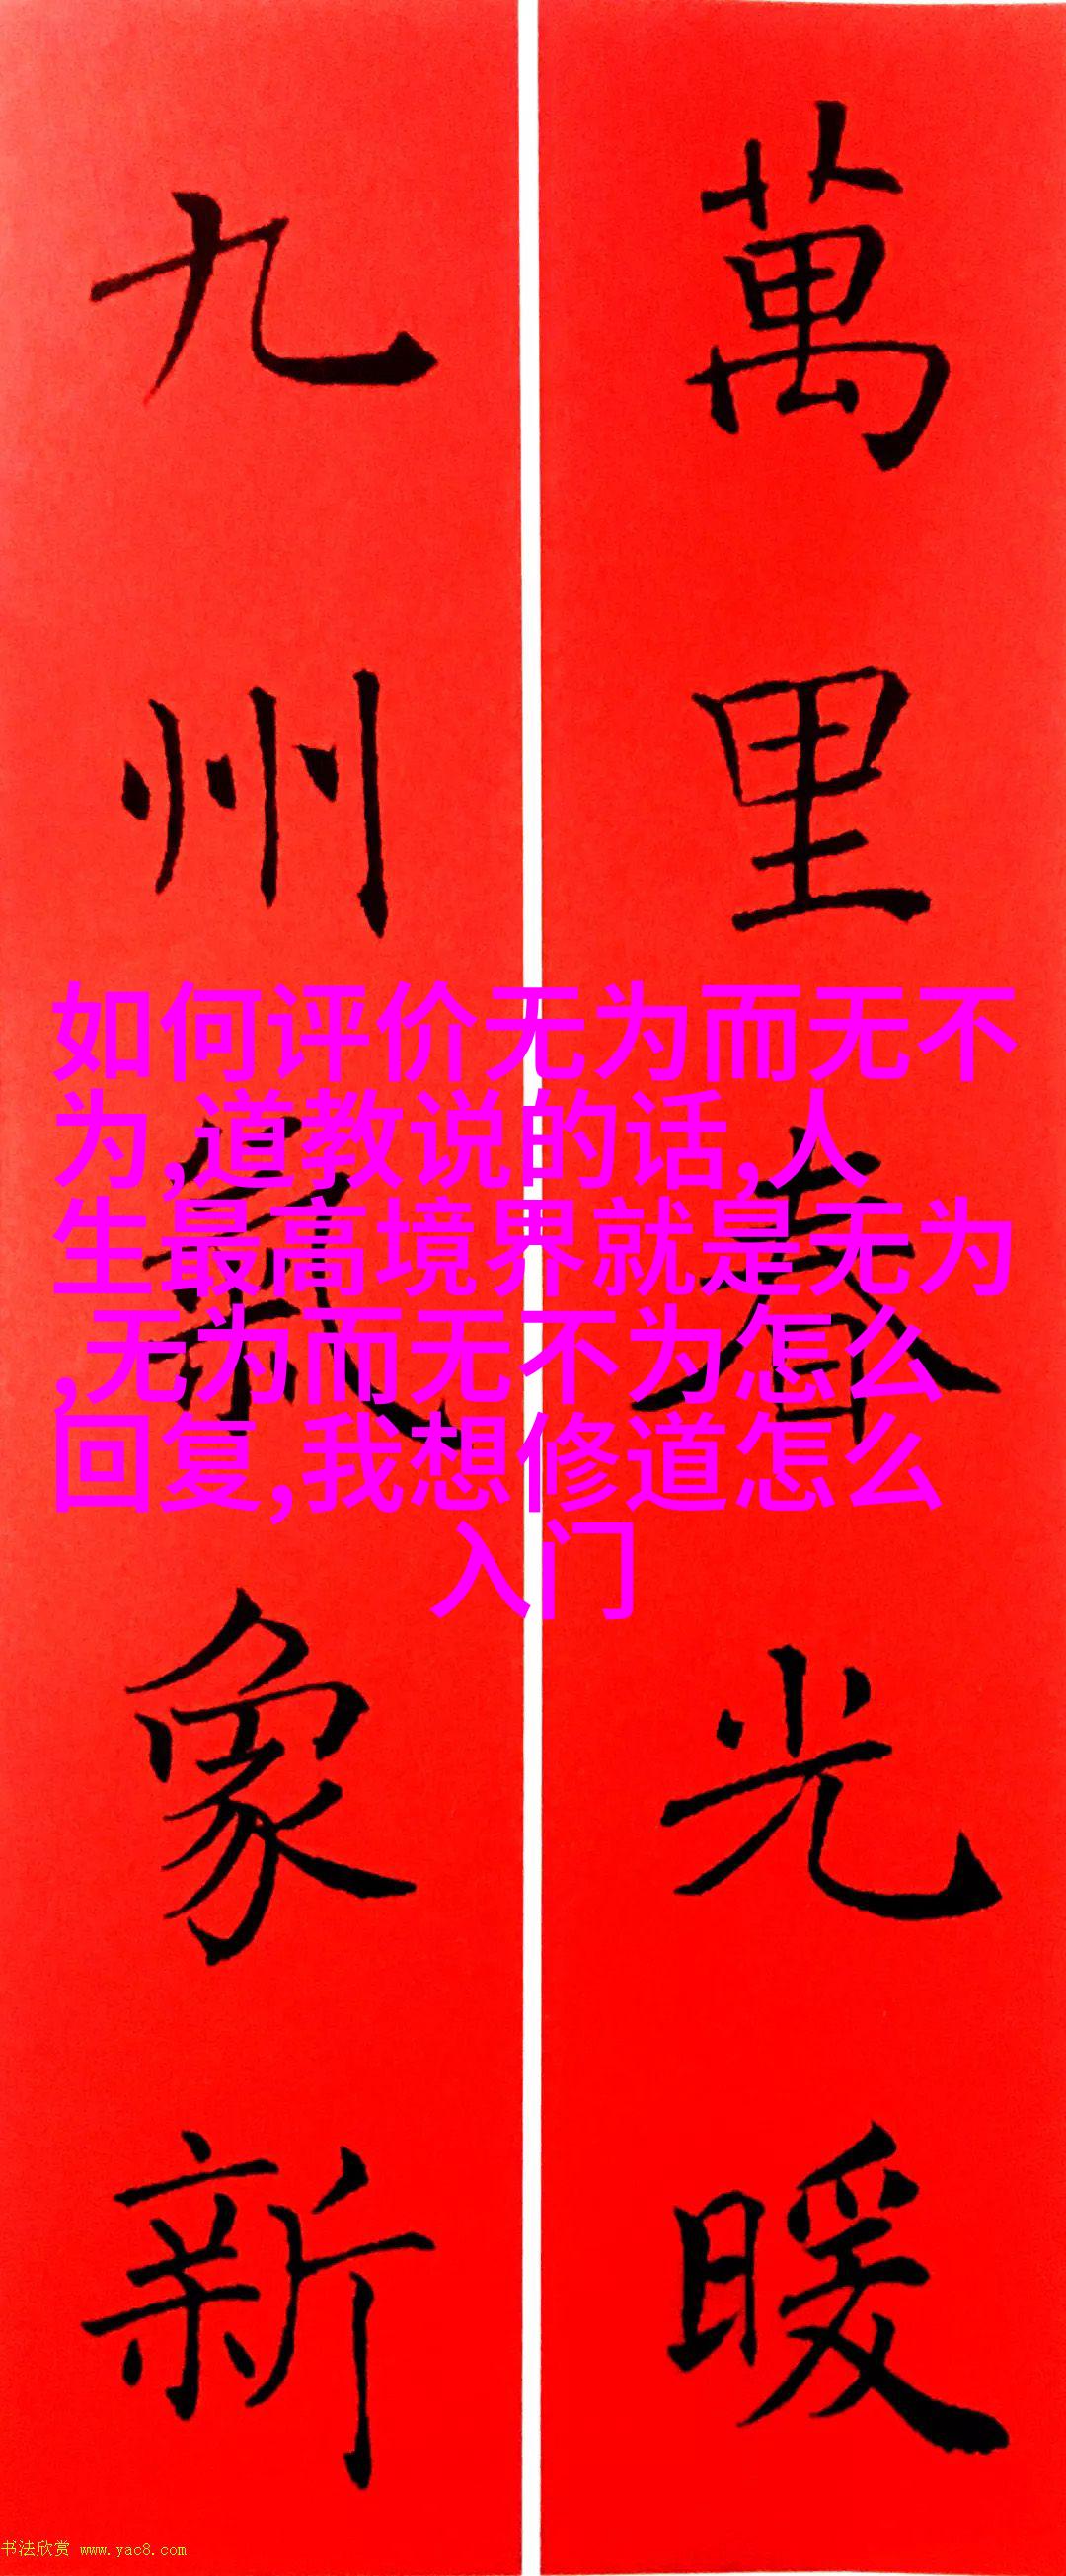 萬里春光暖
九州氣象新
如何评价无为而无不
为,道教说的话,人
生最高境界就是无为
,无为而无不为怎么
回复,我想修道怎么
入门
书法欣赏 www.yac8.com